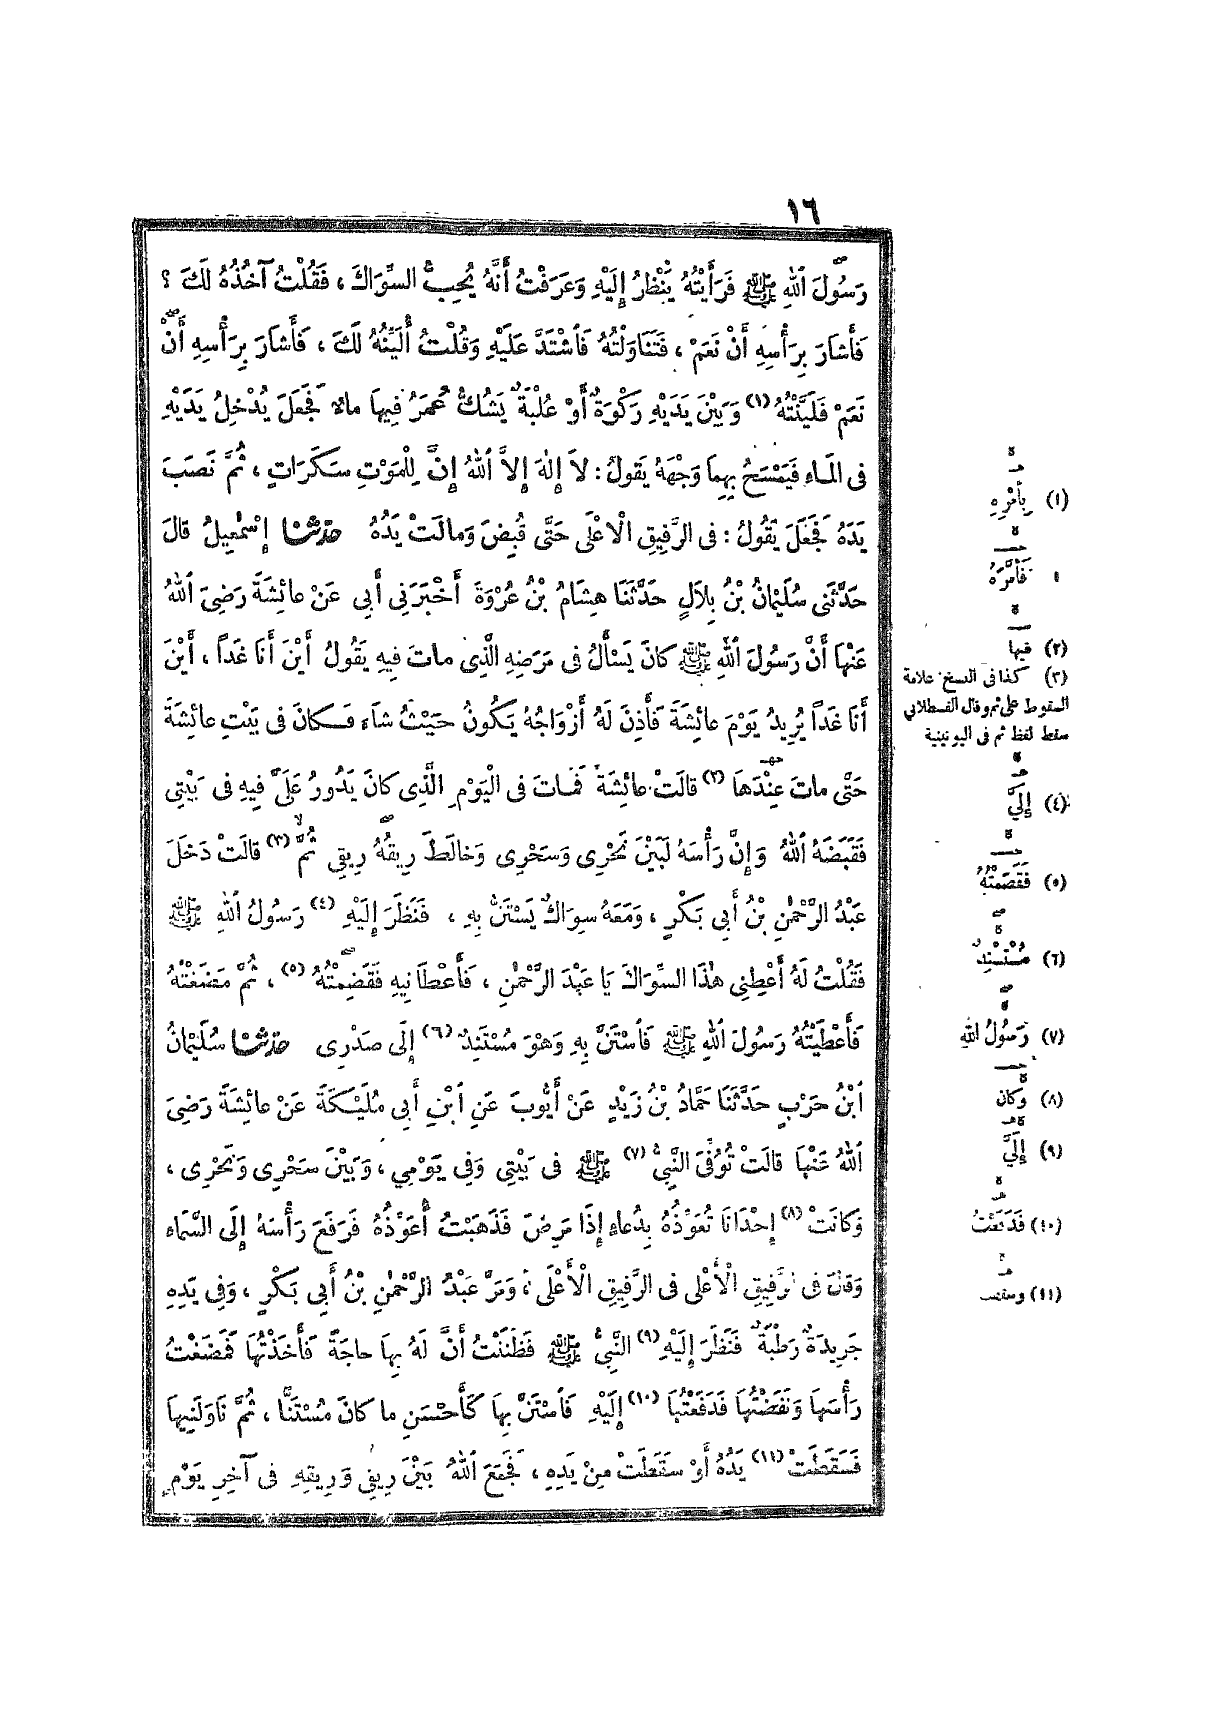 ١٦
رَسُولَ اللهِ ﷺ فَرَأَيْتُهُ يَنْظُرُ إِلَيْهِ وَعَرَفْتُ أَنَّهُ يُحِبُّ السِّوَاكَ ، فَقُلْتُ آخُذُهُ لَكَ ؟
فَأَشَارَ بِرَأْسِهِ أَنْ نَعَمْ ، فَتَنَاوَلْتُهُ فَاشْتَدَّ عَلَيْهِ وَقُلْتُ أُلَيِّنُهُ لَكَ ، فَأَشَارَ بِرَأْسِهِ أَنْ
نَعَمْ فَلَيَّنْتُهُ (١) وَبَيْنَ يَدَيْهِ رَكْوَةٌ أَوْ عُلْبَةٌ يَشُكُّ عُمَرُ فِيهَا مَاءٌ فَجَعَلَ يُدْخِلُ يَدَيْهِ
فِى الْمَاءِ فَيَمْسَحُ بِهِمَا وَجْهَهُ يَقُولُ : لاَ إِلٰهَ إِلاَّ اللهُ إِنَّ لِلْمَوْتِ سَكَرَاتٍ ، ثُمَّ نَصَبَ
يَدَهُ فَجَعَلَ يَقُولُ : فِى الرَّفِيقِ الْأَعْلَى حَتَّى قُبِضَ وَمَالَتْ يَدُهُ حدثنا إِسْمٰعِيلُ قالَ
حَدَّثَنِى سُلَيْمَانُ بْنُ بِلاَلٍ حَدَّثَنَا هِشَامُ بْنُ عُرْوَةَ أَخْبَرَنِى أَبِى عَنْ عائِشَةَ رَضِىَ اللهُ
عَنْهَا أَنَّ رَسُولَ اللهِ ﷺ كانَ يَسْأَلُ فِى مَرَضِهِ الَّذِى ماتَ فِيهِ يَقُولُ أَيْنَ أَنَا غَدًا ، أَيْنَ
أَنَا غَدًا يُرِيدُ يَوْمَ عائِشَةَ فَأَذِنَ لَهُ أَزْوَاجُهُ يَكُونُ حَيْثُ شَاءَ فَكانَ فِى بَيْتِ عائِشَةَ
حَتَّى ماتَ عِنْدَهَا (٢) قالَتْ عائِشَةُ فَماتَ فِى الْيَوْمِ الَّذِى كانَ يَدُورُ عَلَىَّ فِيهِ فِى بَيْتِى
فَقَبَضَهُ اللهُ وَإِنَّ رَأْسَهُ لَبَيْنَ نَحْرِى وَسَحْرِى وَخالَطَ رِيقُهُ رِيقِى ثُمَّ (٣) قالَتْ دَخَلَ
عَبْدُ الرَّحْمٰنِ بْنُ أَبِى بَكْرٍ ، وَمَعَهُ سِوَاكٌ يَسْتَنُّ بِهِ ، فَنَظَرَ إِلَيْهِ (٤) رَسُولُ اللهِ ﷺ
فَقُلْتُ لَهُ أَعْطِنِى هٰذَا السِّوَاكَ يَا عَبْدَ الرَّحْمٰنِ ، فَأَعْطَانِيهِ فَقَضِمْتُهُ (٥) ، ثُمَّ مَضَغْتُهُ
فَأَعْطَيْتُهُ رَسُولَ اللهِ ﷺ فَاسْتَنَّ بِهِ وَهْوَ مُسْتَنِدٌ (٦) إِلَى صَدْرِى حدثنا سُلَيْمَانُ
ابْنُ حَرْبٍ حَدَّثَنَا حَمَّادُ بْنُ زَيْدٍ عَنْ أَيُّوبَ عَنِ ابْنِ أَبِى مُلَيْكَةَ عَنْ عائِشَةَ رَضِىَ
اللهُ عَنْهَا قالَتْ تُوُفِّىَ النَّبِىُّ (٧) ﷺ فِى بَيْتِى وَفِى يَوْمِى ، وَبَيْنَ سَحْرِى وَنَحْرِى ،
وَكَانَتْ (٨) إِحْدَانَا تُعَوِّذُهُ بِدُعاءٍ إِذَا مَرِضَ فَذَهَبْتُ أُعَوِّذُهُ فَرَفَعَ رَأْسَهُ إِلَى السَّمَاءِ
وَقَالَ فِى الرَّفِيقِ الْأَعْلَى فِى الرَّفِيقِ الْأَعْلَى ، وَمَرَّ عَبْدُ الرَّحْمٰنِ بْنُ أَبِى بَكْرٍ ، وَفِى يَدِهِ
جَرِيدَةٌ رَطْبَةٌ فَنَظَرَ إِلَيْهِ (٩) النَّبِىُّ ﷺ فَظَنَنْتُ أَنَّ لَهُ بِهَا حاجَةً فَأَخَذْتُهَا فَمَضَغْتُ
رَأْسَهَا وَنَفَضْتُهَا فَدَفَعْتُهَا (١٠) إِلَيْهِ فَاسْتَنَّ بِهَا كَأَحْسَنِ ما كانَ مُسْتَنًّا ، ثُمَّ نَاوَلَنِيهَا
فَسَقَطَتْ (١١) يَدُهُ أَوْ سَقَطَتْ مِنْ يَدِهِ ، فَجَمَعَ اللهُ بَيْنَ رِيقِى وَرِيقِهِ فِى آخِرِ يَوْمٍ
(١) بِأَمْرِهِ
فَأَمَرَّهُ
(٢) فيها
(٣) كذا فى النسخ علامة
السقوط على ثم وقال القسطلانى
سقط لفظ ثم فى اليونينية
(٤) إِلَىَّ
(٥) فَقَصَمْتُهُ
(٦) مُسْتَنِدٌ
(٧) رَسُولُ اللهِ
(٨) وَكان
(٩) إِلَىَّ
(١٠) فَدَفَعْتُ
(١١) وسقطت